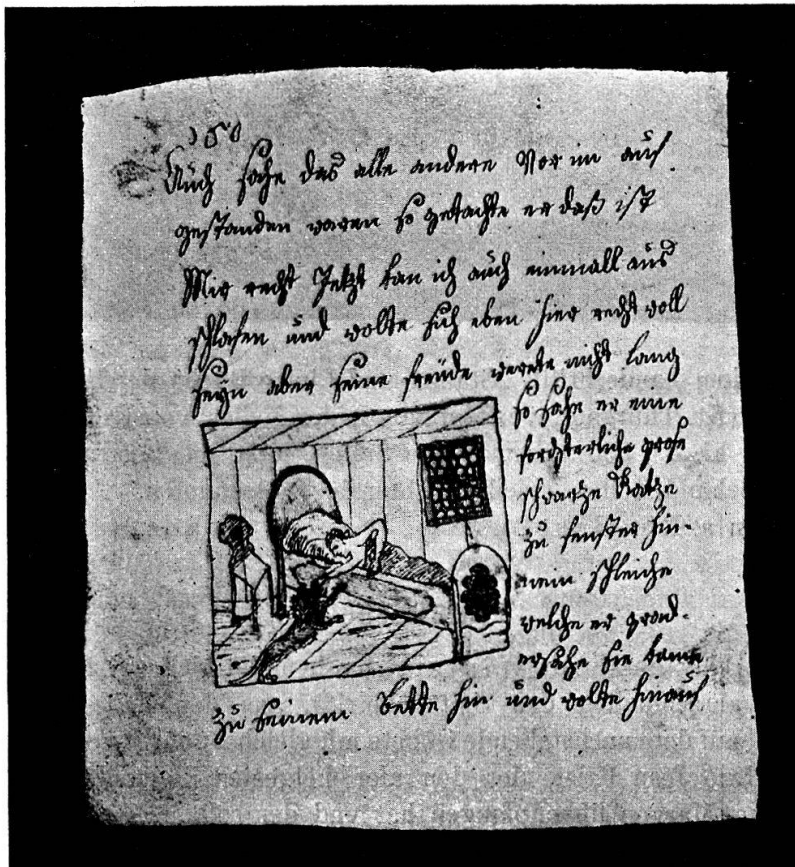 160
Auch sahe das alle andere Vor im auf
gestanden waren so gedachte er daß ist
Mir recht Jetzt kan ich auch einmall aus
schlafen und wolte sich eben hier recht woll
seyn aber seine freüde werete nicht lang
so sahe er eine
forchterliche grose
schwartze Katze
zu fenster hin-
nein schleiche
welche er grad-
ersahe sie kame
zu seinem Bette hin und wolte hinauf